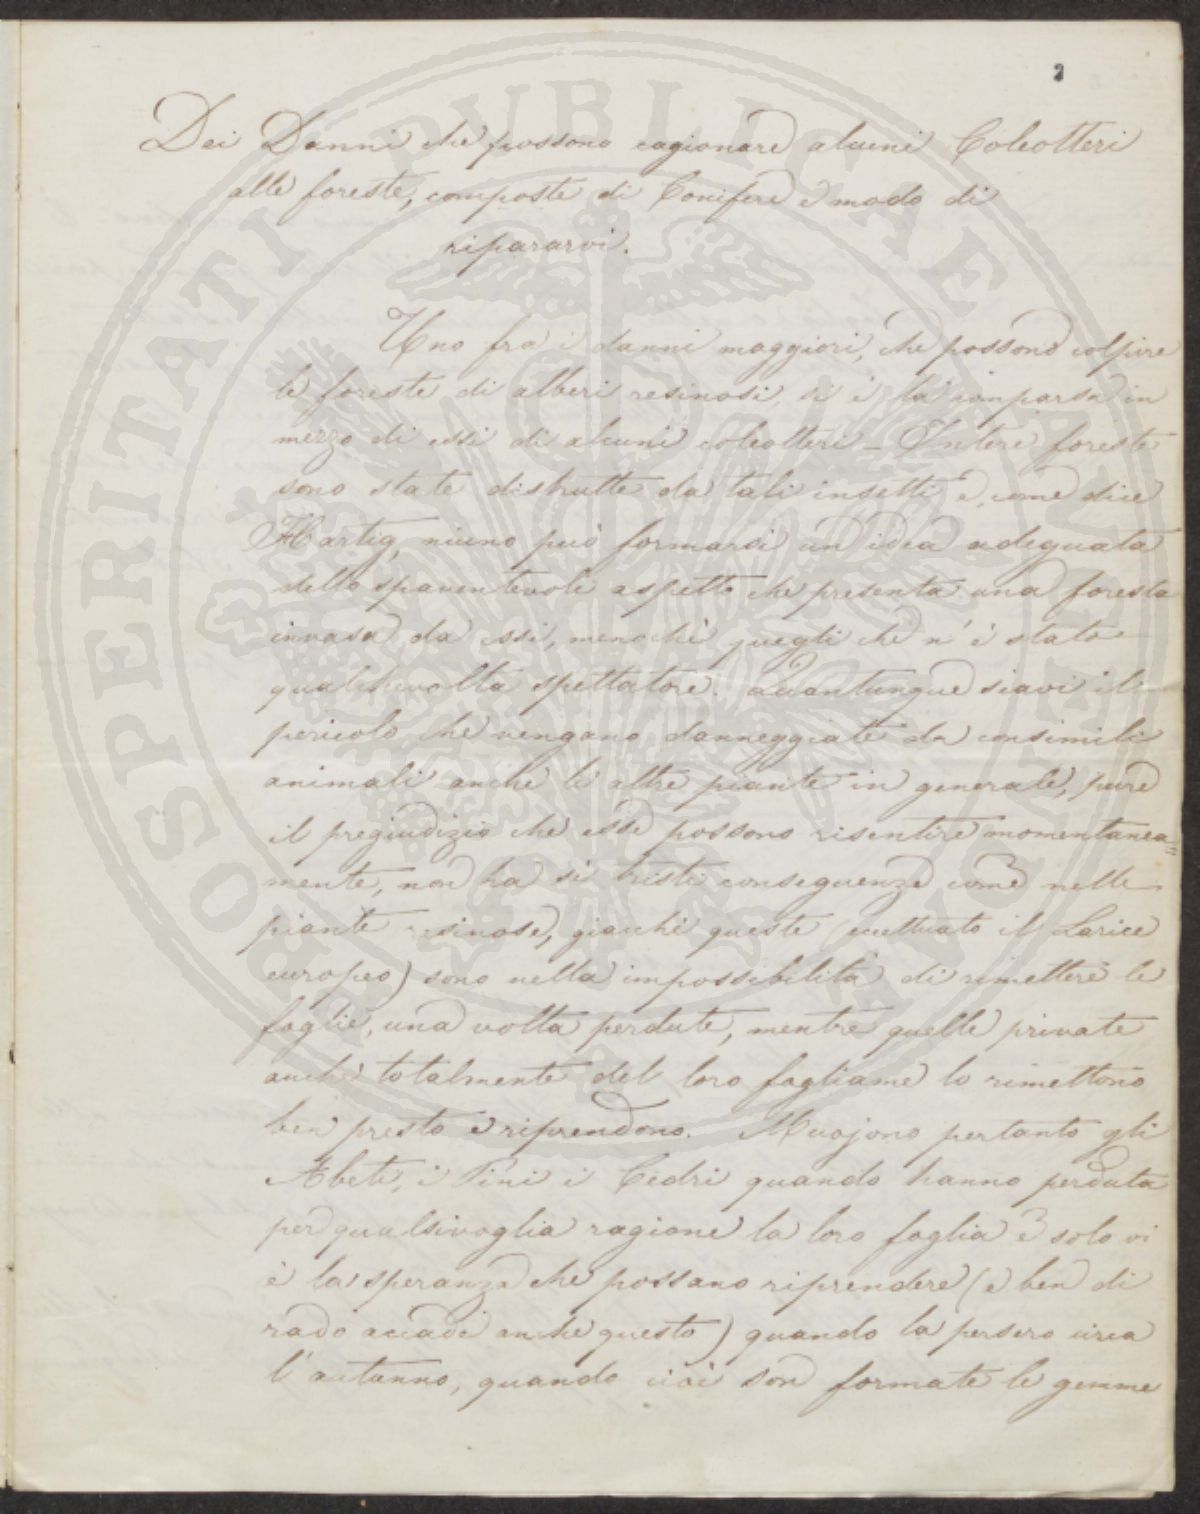 2
Dei Danni che possono cagionare alcuni Coleotteri
alle foreste, composte di Conifere e modo di
ripararvi.
Uno fra i danni maggiori, che possono colpire
le foreste di alberi resinosi, si è la comparsa in
mezzo di essi di alcuni coleotteri – Intere foreste
sono state distrutte da tali insetti e, come dice
Hartig, niuno può formarsi un idea adeguata
dello spaventevole aspetto che presenta una foresta
invasa da essi, menochè quegli che n'è stato
qualchevolta spettatore. Quantunque siavi il
pericolo che vengano danneggiate da consimili
animali anche le altre piante in generale, pure
il pregiudizio che esse possono risentire momentanea=
mente, non ha sì tristi conseguenze come nelle
piante resinose, giacchè queste (eccettuato il Larice
europeo) sono nella impossibilità di rimettere le
foglie, una volta perdute, mentre quelle private
anche totalmente del loro fogliame lo rimettono
ben presto e riprendono. Muojono pertanto gli
Abete, i Pini i Cedri quando hanno perduta
per qualsivoglia ragione la loro foglia e solo vi
è la speranza che possano riprendere (e ben di
rado accade anche questo) quando la persero circa
l'autunno, quando cioè son formate le gemme
PROSPERITATI PUBLICAE AUGENDAE